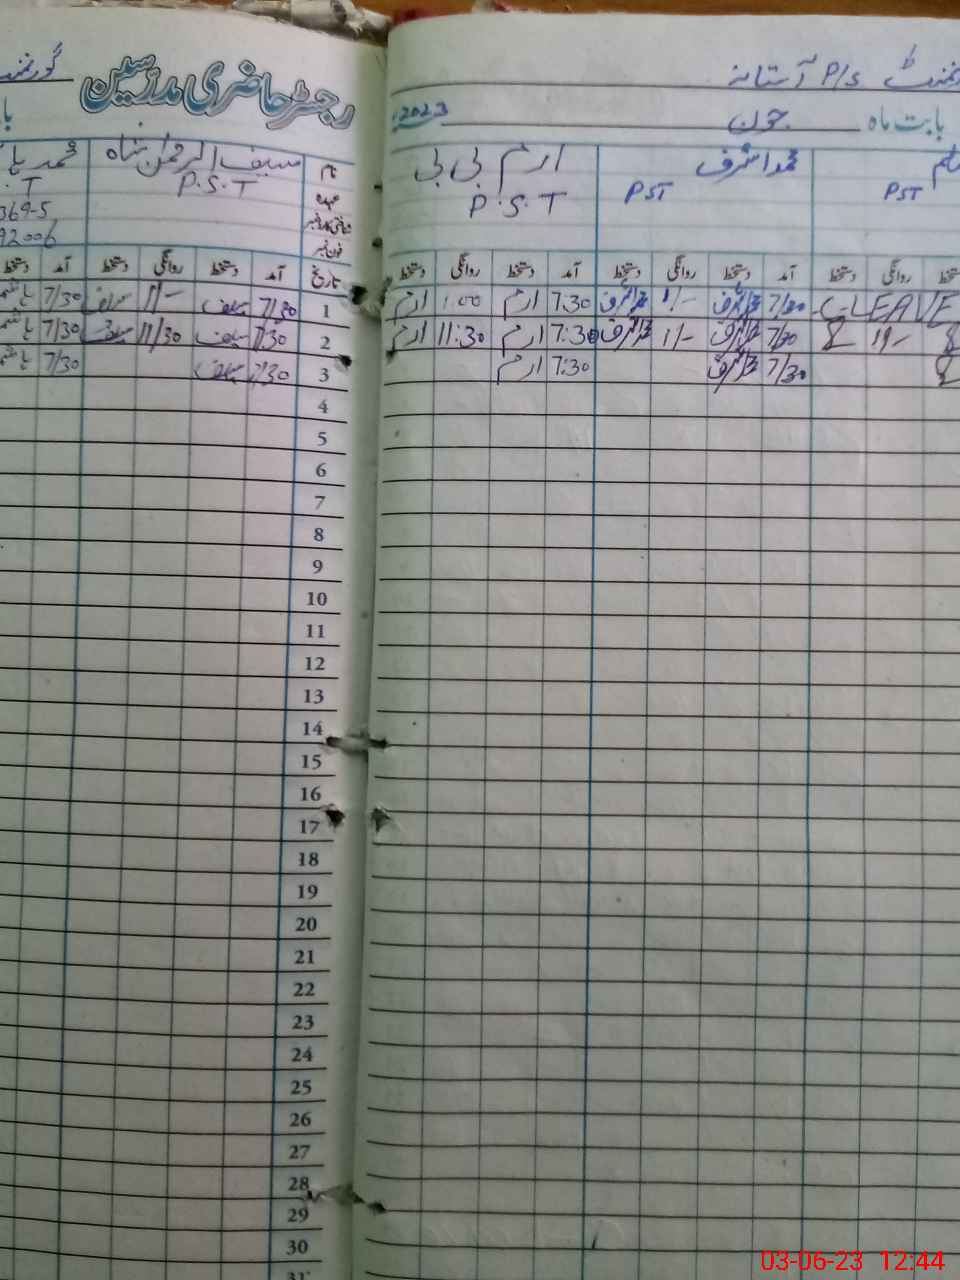 رجسٹر حاضری مدرسین
P/S آستانہ
بابت ماہ جون 2023
نام
سیف الرحمٰن شاہ
P.S.T
ارم بی بی
P.S.T
محمد اشرف
PST
PST
T
369-5
92006
عہدہ
فون نمبر
تاریخ آمد دستخط روانگی دستخط آمد دستخط
آمد دستخط روانگی دستخط آمد دستخط روانگی دستخط
روانگی دستخط
1 7/30 سیف 11/- سیف 7/30
7:30 ارم 1:00 ارم
7/30 محمد اشرف 1/- محمد اشرف
C-LEAVE
2 7/30 سیف 11/30 سیف 7/30
7:30 ارم 11:30 ارم
7/30 محمد اشرف 1/- محمد اشرف
3 7/30 سیف 7/30
7:30 ارم
7/30 محمد اشرف
4
5
6
7
8
9
10
11
12
13
14
15
16
17
18
19
20
21
22
23
24
25
26
27
28
29
30
31
03-06-23 12:44